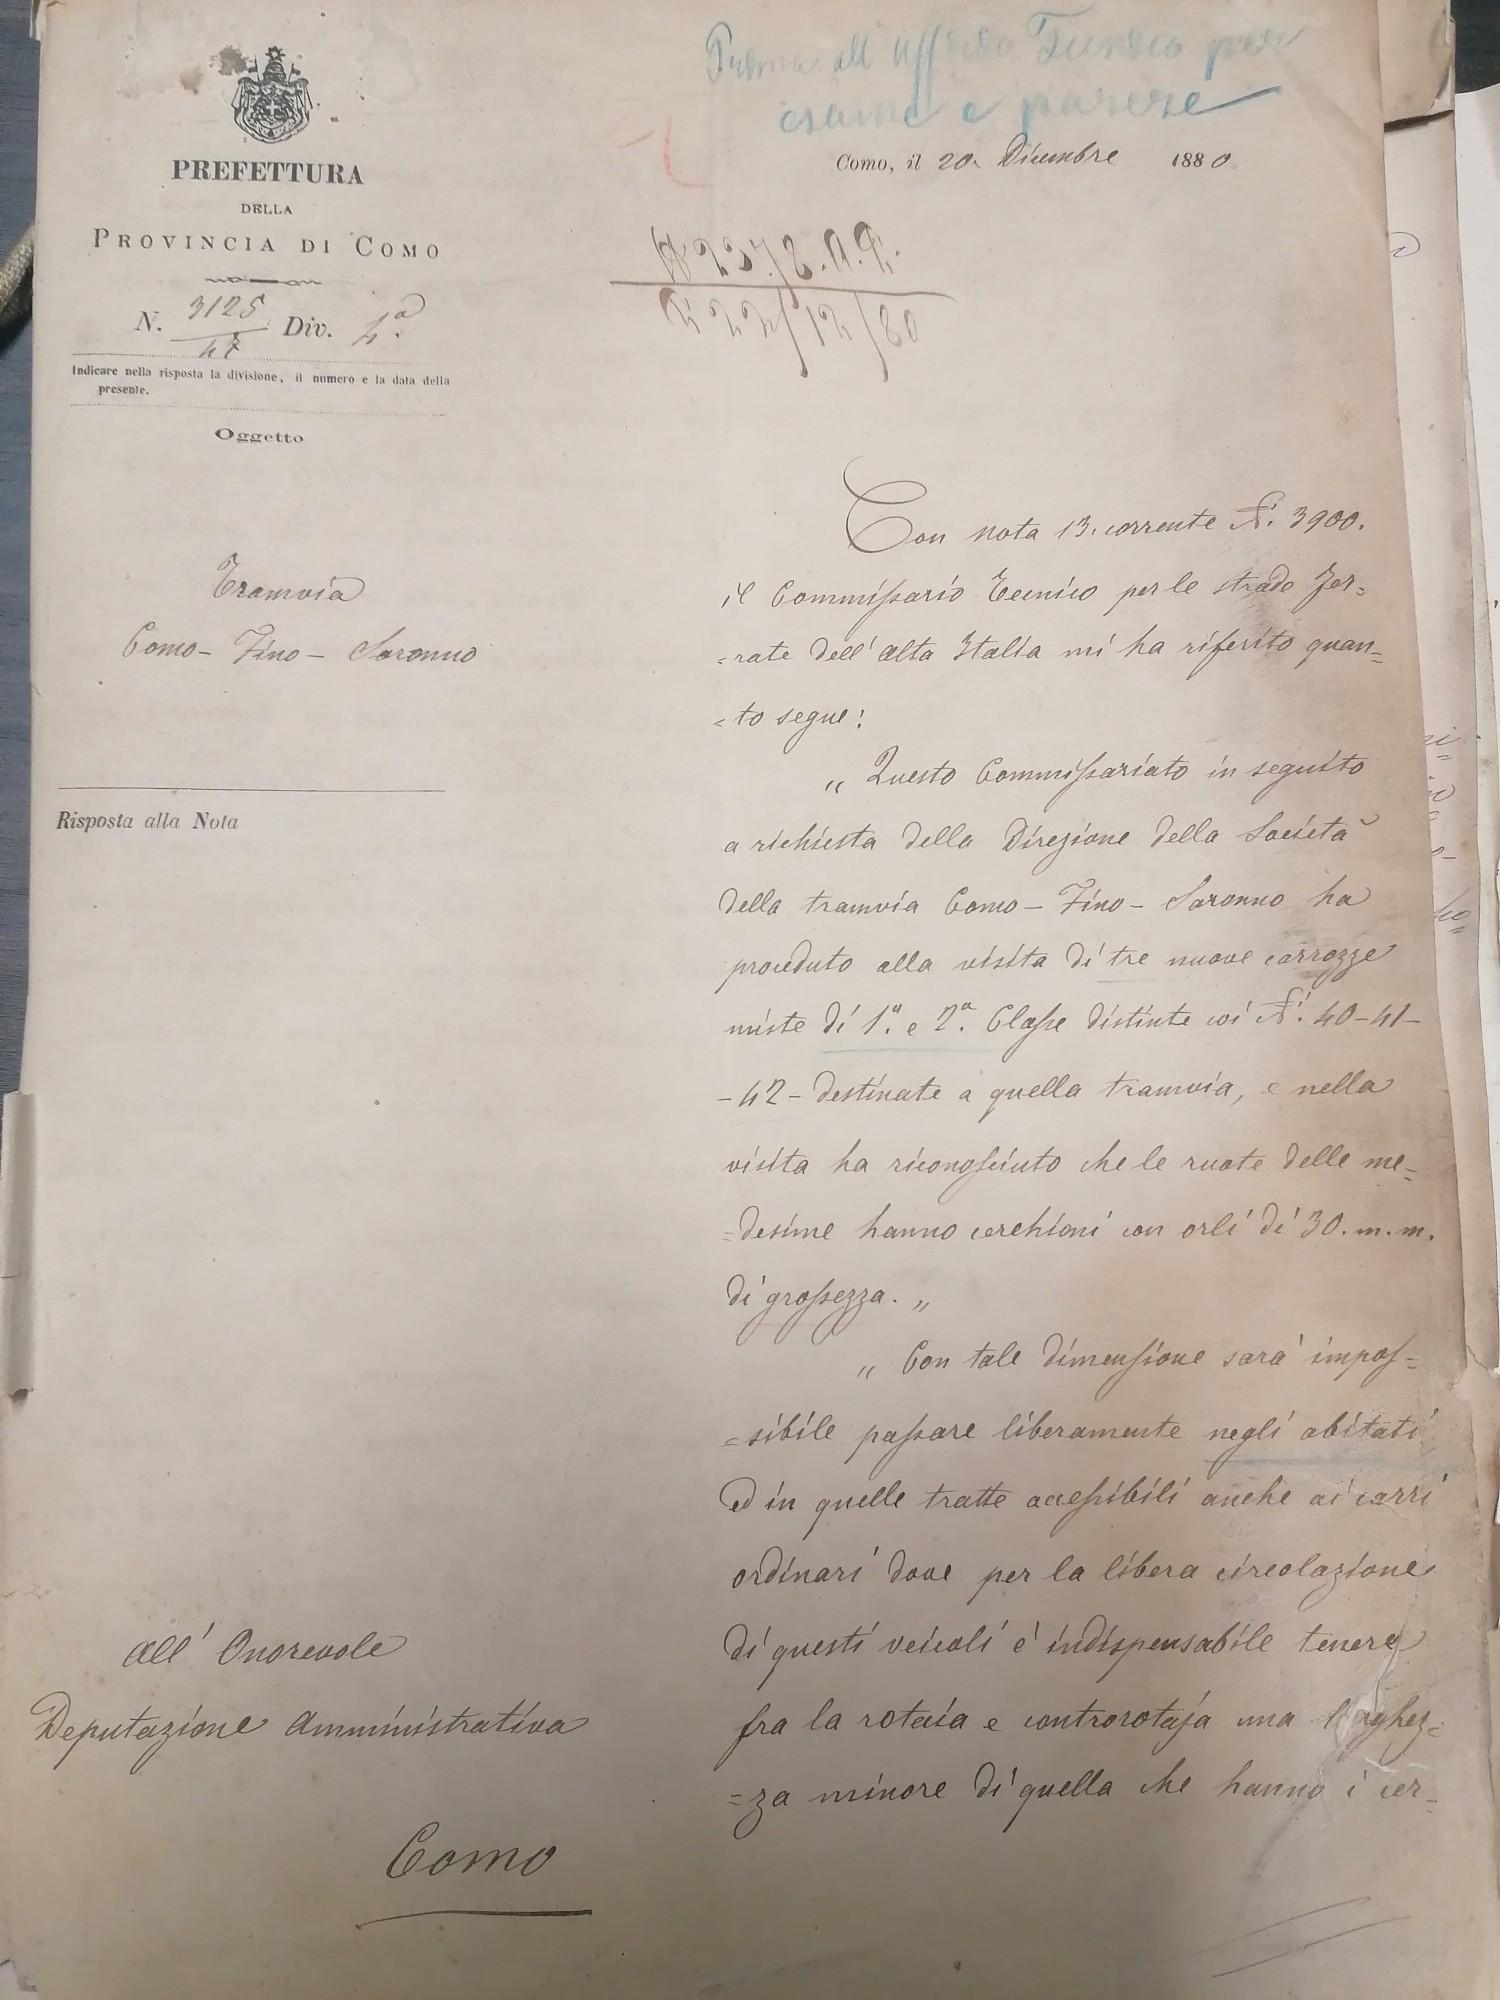 Prima all'Ufficio Tecnico per
esame e parere
PREFETTURA
DELLA
PROVINCIA DI COMO
N. 3125 Div. 4.a
Indicare nella risposta la divisione, il numero e la data della
presente.
Oggetto
Tramvia
Como - Fino - Saronno
Risposta alla Nota
All' Onorevole
Deputazione Amministrativa
Como
Como, il 20 Dicembre 1880
Con nota 13. corrente N. 3900.
il Commissario Tecnico per le strade fer=
=rate dell'alta Italia mi ha riferito quan=
=to segue:
„ Questo Commissariato in seguito
a richiesta della Direzione della Società
della tramvia Como - Fino - Saronno ha
proceduto alla visita di tre nuove carrozze
miste di 1.a e 2.a Classe distinte coi N.i 40-41-
-42- destinate a quella tramvia, e nella
visita ha riconosciuto che le ruote delle me=
=desime hanno cerchioni con orli di 30. m.m.
di grossezza. „
„ Con tale dimensione sarà impos=
=sibile passare liberamente negli abitati
ed in quelle tratte accessibili anche ai carri
ordinari dove per la libera circolazione
di questi veicoli è indispensabile tenere
fra la rotaia e controrotaja una larghez=
=za minore di quella che hanno i cer=